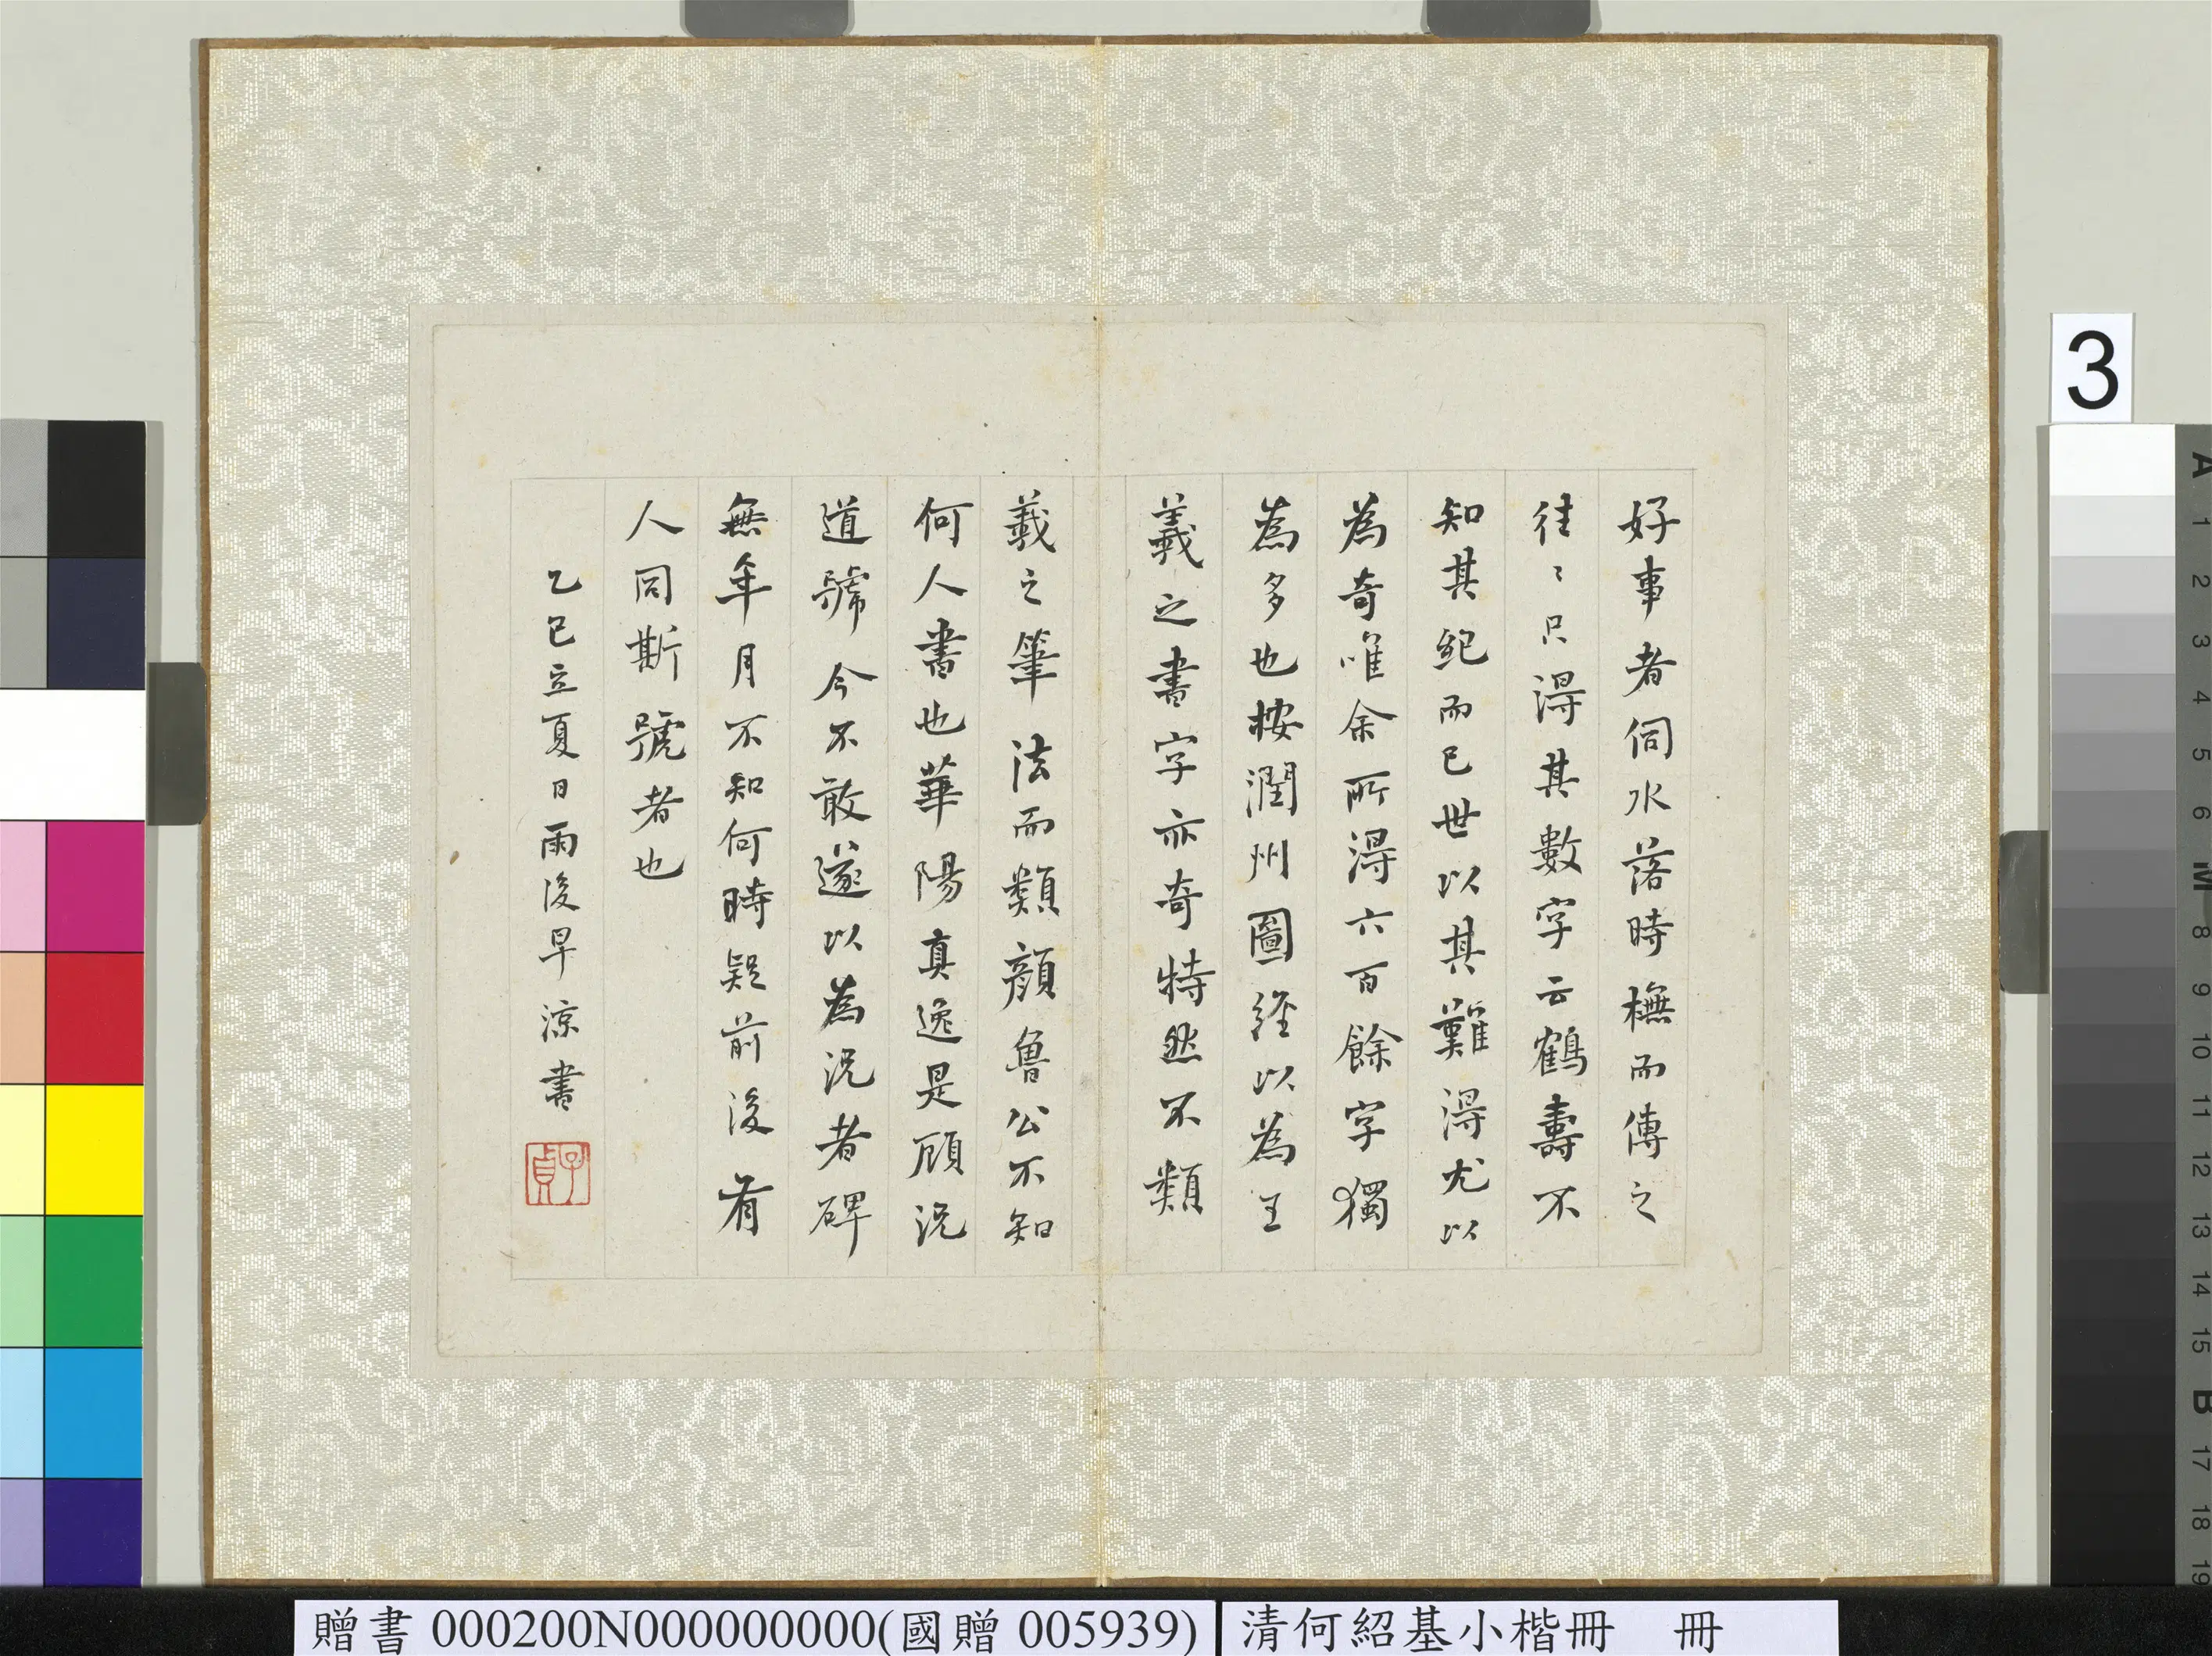 好事者伺水落時橅而傳之
往〻只淂其數字云鶴壽不
知其紀而已世以其難淂尤以
為奇唯余所淂六百餘字獨
為多也桉潤州圖經以為王
羲之書字亦奇特然不類
羲之筆法而類顏魯公不知
何人書也華陽真逸是顧況
道號今不敢遂以為況者碑
無年月不知何時疑前後有
人同斯號者也
乙巳立夏日雨後早涼書
子貞
3
A 1 2 3 4 5 6 M 8 9 10 11 12 13 14 15 B 17 18 19
贈書 000200N000000000(國贈 005939)
清何紹基小楷冊 冊